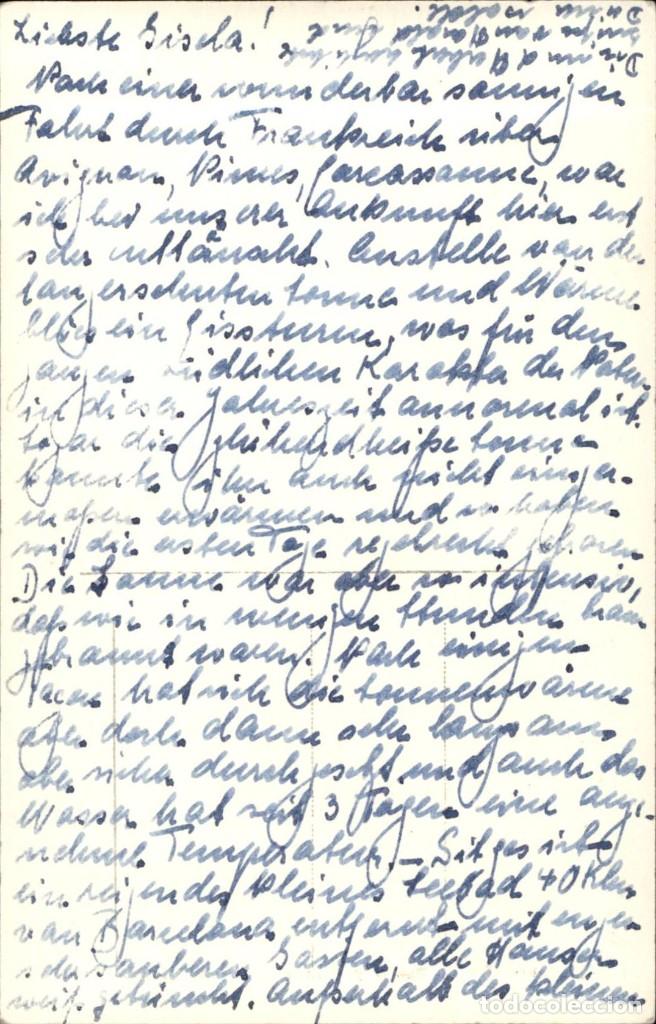 Liebste Gisela!
Nach einer wunderbar sonnigen
Fahrt durch Frankreich über
Avignon, Nimes, Carcassonne, war
ich bei unserer Ankunft hier erst
sehr enttäuscht. Anstelle von der
langersehnten Sonne und Wärme
blies ein Eissturm, was für den
ganzen südlichen Karakter der Natur
in dieser Jahreszeit annormal ist.
Sogar die glühendheiße Sonne
konnte ihn auch nicht einiger-
maßen erwärmen und so haben
wir die ersten Tage regelrecht gefroren
Die Sonne war aber so intensiv,
daß wir in wenigen Stunden braun
gebrannt waren. Nach einigen
Tagen hat sich die Sonnenwärme
aber doch dann sehr langsam
aber sicher durchgesetzt und auch das
Wasser hat seit 3 Tagen eine ange-
nehme Temperatur. – Sitges ist
ein reizendes kleines Seebad 40 Klm
von Barcelona entfernt mit engen
sehr sauberen Gassen, alle Häuser
weiß getüncht. Außerhalb des kleinen
todocoleccion